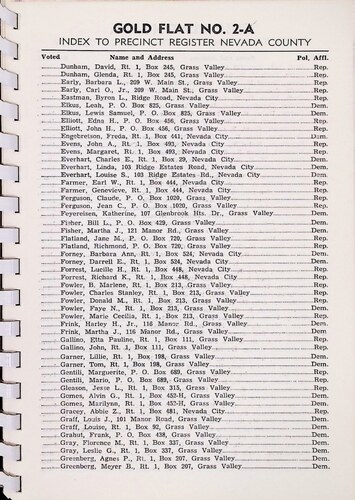 GOLD FLAT NO. 2-A
INDEX TO PRECINCT REGISTER NEVADA COUNTY
Voted Name and Address Pol. Affl.
Dunham, David, Rt. 1, Box 245, Grass Valley Rep.
Dunham, Glenda, Rt. 1, Box 245, Grass Valley Rep.
Early, Barbara L., 209 W. Main St., Grass Valley Rep.
Early, Carl O., Jr., 209 W. Main St., Grass Valley Rep.
Eastman, Byron L., Ridge Road, Nevada City Rep.
Elkus, Leah, P. O. Box 825, Grass Valley Dem.
Elkus, Lewis Samuel, P. O. Box 825, Grass Valley Dem.
Elliott, Edna H., P. O. Box 456, Grass Valley Rep.
Elliott, John H., P. O. Box 456, Grass Valley Rep.
Engebretson, Freda, Rt. 1, Box 441, Nevada City Dem.
Evens, John A., Rt. 1, Box 493, Nevada City Rep.
Evens, Margaret, Rt. 1, Box 493, Nevada City Rep.
Everhart, Charles E., Rt. 1, Box 29, Nevada City Dem.
Everhart, Linda, 103 Ridge Estates Road, Nevada City Dem.
Everhart, Louise S., 103 Ridge Estates Rd., Nevada City Dem.
Farmer, Earl W., Rt. 1, Box 444, Nevada City Rep.
Farmer, Genevieve, Rt. 1, Box 444, Nevada City Rep.
Ferguson, Claude, P. O. Box 1020, Grass Valley Rep.
Ferguson, Jean C., P. O. Box 1020, Grass Valley Rep.
Feyereisen, Katherine, 107 Glenbrook Hts. Dr., Grass Valley Dem.
Fisher, Bill L., P. O. Box 429, Grass Valley Dem.
Fisher, Martha J., 121 Manor Rd., Grass Valley Dem.
Flatland, Jane M., P. O. Box 720, Grass Valley Rep.
Flatland, Richmond, P. O. Box 720, Grass Valley Rep.
Forney, Barbara Ann, Rt. 2, Box 524, Nevada City Dem.
Forney, Darrell E., Rt. 2, Box 524, Nevada City Dem.
Forrest, Lucille H., Rt. 1, Box 448, Nevada City Rep.
Forrest, Richard K., Rt. 1, Box 448, Nevada City Rep.
Fowler, B. Marlene, Rt. 1, Box 213, Grass Valley Rep.
Fowler, Charles Stanley, Rt. 1, Box 213, Grass Valley Rep.
Fowler, Donald M., Rt. 1, Box 213, Grass Valley Rep.
Fowler, Faye N., Rt. 1, Box 213, Grass Valley Dem.
Fowler, Marie Cecilia, Rt. 1, Box 213, Grass Valley Rep.
Frink, Harley H., Jr., 116 Manor Rd., Grass Valley Dem.
Frink, Martha J., 116 Manor Rd., Grass Valley Dem.
Gallino, Etta Pauline, Rt. 1, Box 111, Grass Valley Rep.
Gallino, John, Rt. 1, Box 111, Grass Valley Rep.
Garner, Lillie, Rt. 1, Box 198, Grass Valley Dem.
Garner, Tom, Rt. 1, Box 198, Grass Valley Dem.
Gentili, Marguerite, P. O. Box 689, Grass Valley Rep.
Gentili, Mario, P. O. Box 689, Grass Valley Rep.
Gleason, Jesse L., Rt. 1, Box 315, Grass Valley Rep.
Gomes, Alvin G., Rt. 1, Box 452-H, Grass Valley Dem.
Gomes, Marilynn, Rt. 1, Box 452-H, Grass Valley Dem.
Gracey, Abbie Z., Rt. 1, Box 481, Nevada City Rep.
Graff, Louis J., 101 Manor Road, Grass Valley Dem.
Graff, Louise, Rt. 1, Box 92, Grass Valley Dem.
Grahut, Frank, P. O. Box 438, Grass Valley Dem.
Gray, Florence M., Rt. 1, Box 337, Grass Valley Dem.
Gray, Leslie G., Rt. 1, Box 337, Grass Valley Dem.
Greenberg, Agnes P., Rt. 1, Box 207, Grass Valley Dem.
Greenberg, Meyer B., Rt. 1, Box 207, Grass Valley Dem.